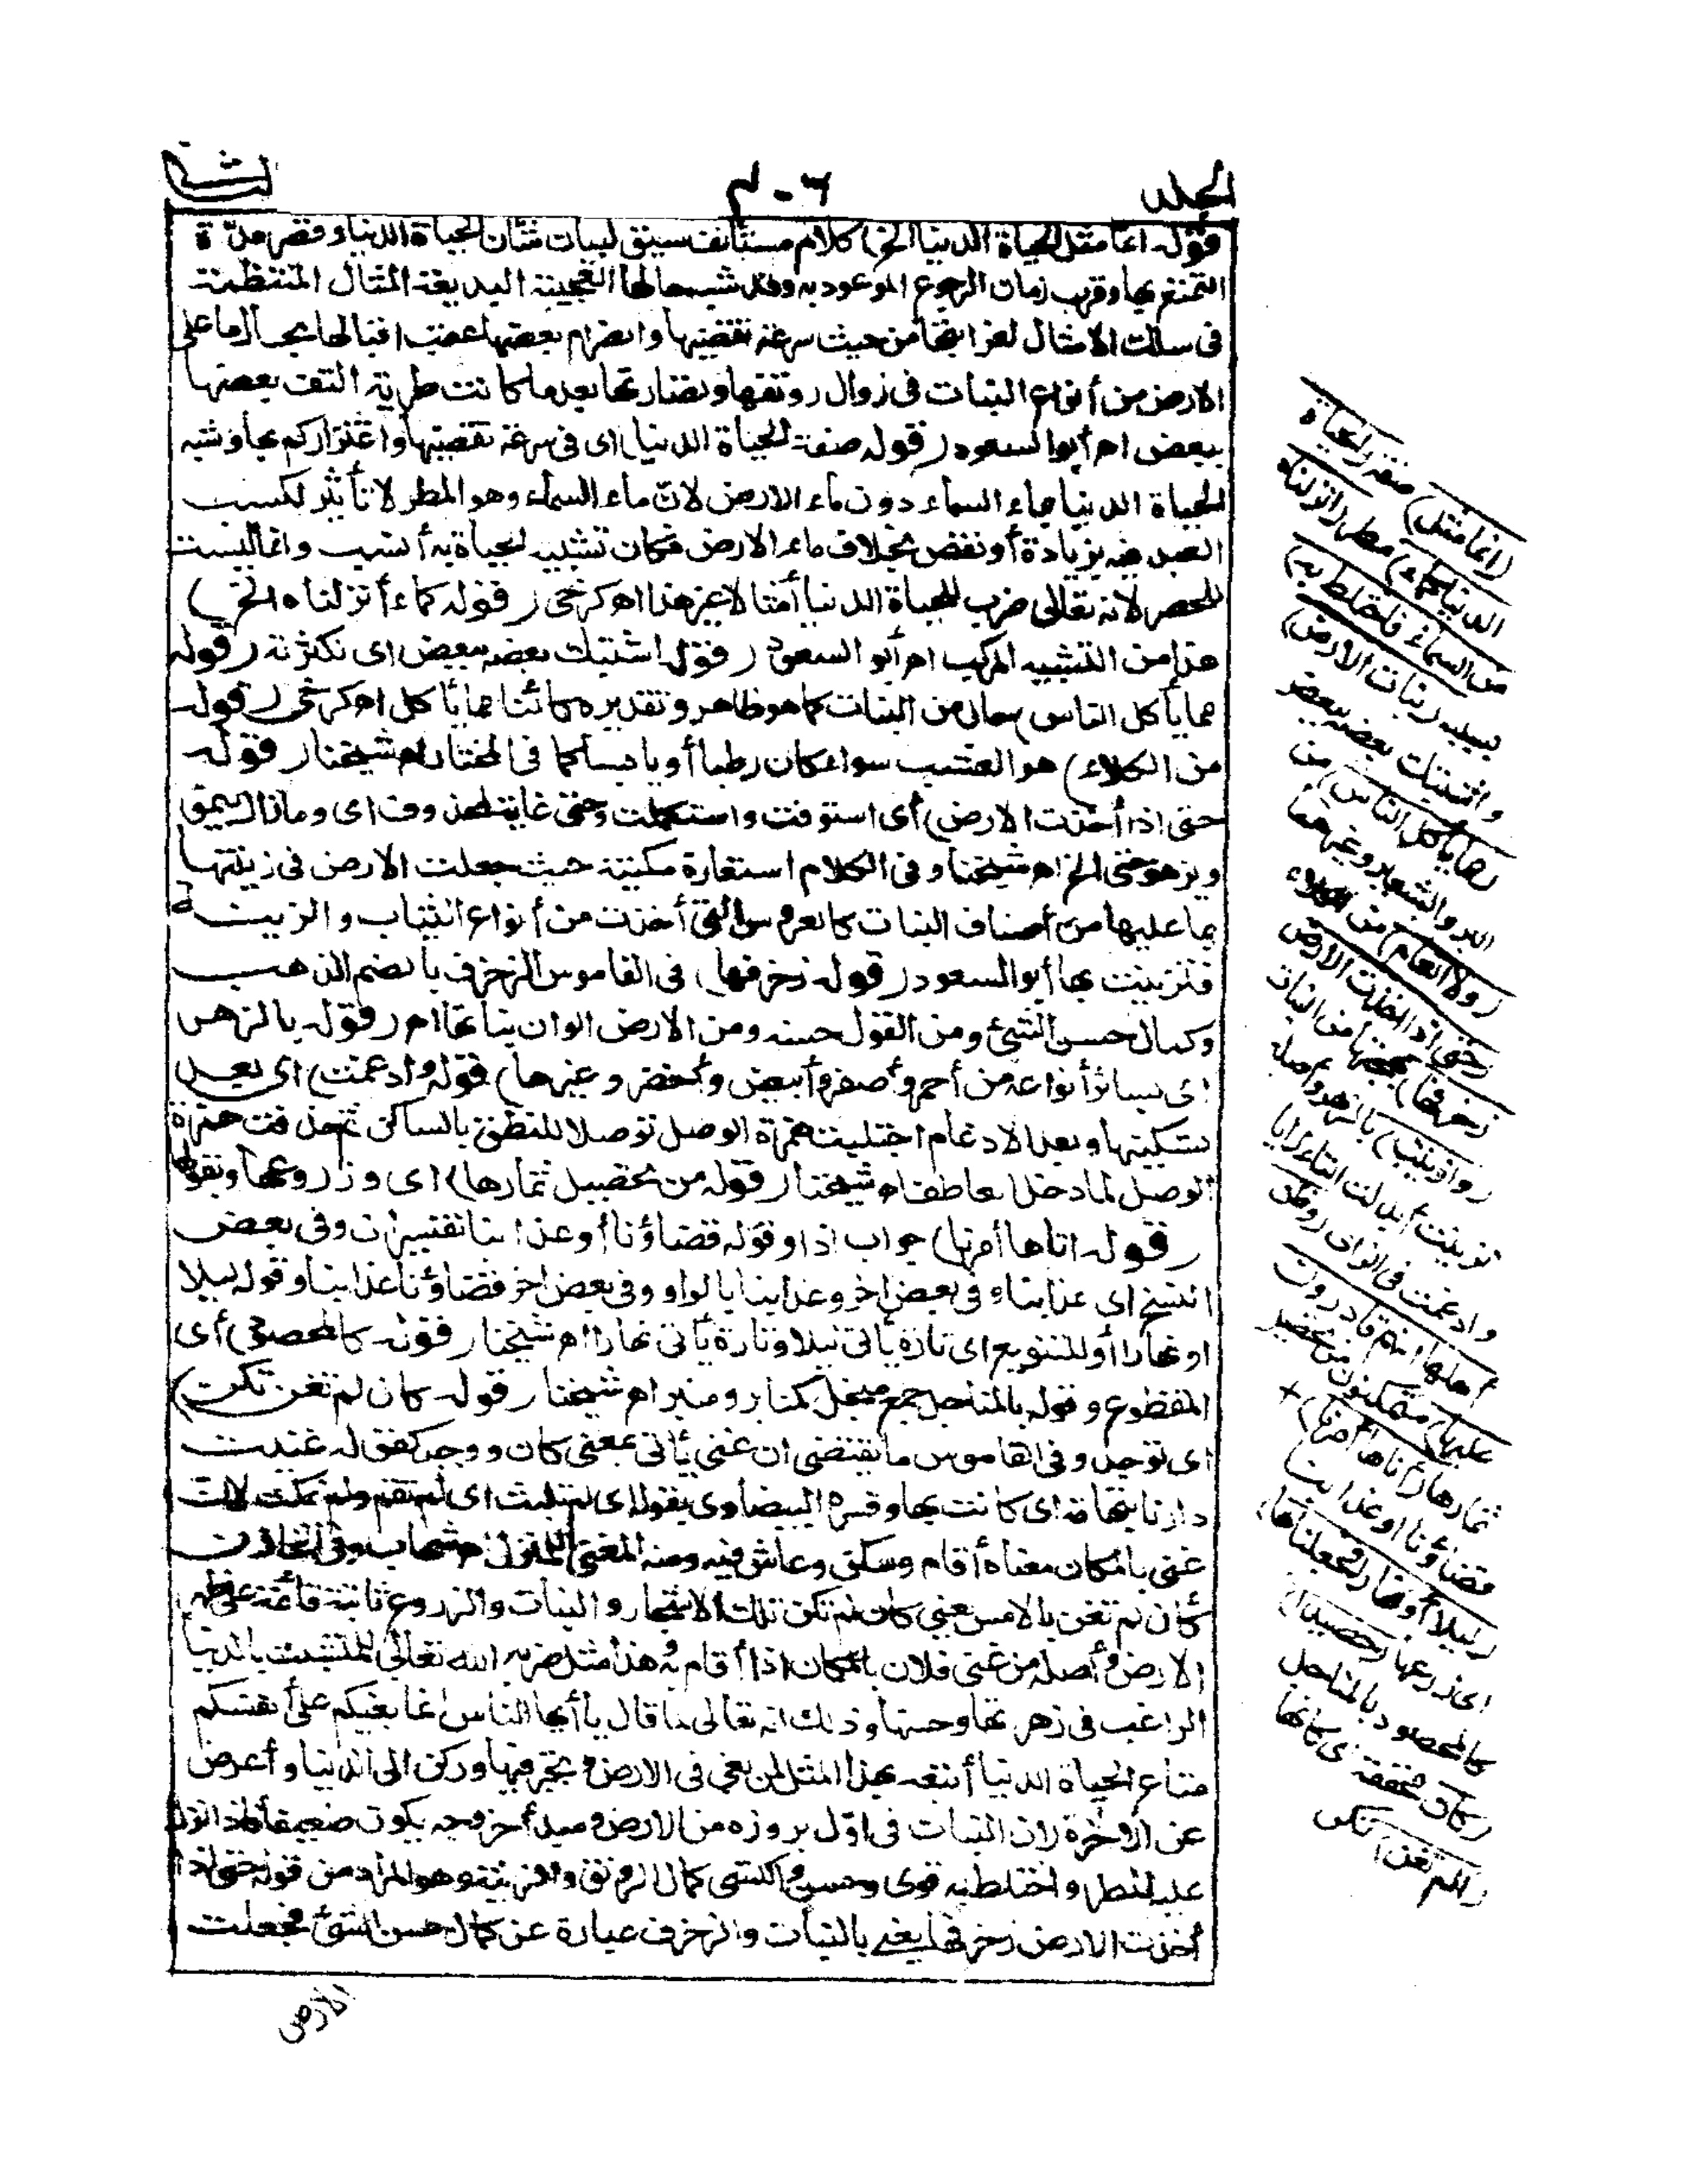 الجلد
٢٠٦
الثاني
قوله انما مثل الحياة الدنيا الخ) كلام مستأنف سيق لبيان شأن الحياة الدنيا وقصر مدّة
التمتع بها وقرب زمان الرجوع الموعود به وقد شبه حالها العجيبة البديعة المثال المنتظمة
فى سلك الامثال لغرابتها من حيث سرعة تقضيها وانصرام بعضها عقب اقبالها بحال ما على
الارض من أنواع النبات فى زوال رونقها ونضارتها بعد ما كانت طرية التف بعضها
ببعض اه أبو السعود (قوله صفة الحياة الدنيا) اى فى سرعة تقضيها واغتراركم بها وشبه
الحياة الدنيا بماء السماء دون ماء الارض لان ماء السماء وهو المطر لا تأثير لكسب
العبد فيه بزيادة أو نقص بخلاف ماء الارض فكان تشبيه الحياة به أنسب وانما ليست
للحصر لانه تعالى ضرب للحياة الدنيا أمثالا غير هذا اه كرخى (قوله كماء أنزلناه الخ)
هذا من التشبيه المركب اه أبو السعود (قوله اشتبك بعضه ببعض اى لكثرته (قوله
مما يأكل الناس) حال من النبات كما هو ظاهر وتقديره كائنا مما يأكل اه كرخى (قوله
من الكلاء) هو العشب سواء كان رطبا أو يابسا كما فى المختار اه شيخنا (قوله
حتى اذا أخذت الارض) أى استوفت واستكملت وحتى غاية لمحذوف اى وما زال ينمو
ويزهو حتى الخ اه شيخنا وفى الكلام استعارة مكنية حيث جعلت الارض فى زينتها
بما عليها من أصناف النبات كالعروس التى أخذت من أنواع الثياب والزينة
فتزينت بها أبو السعود (قوله زخرفها) فى القاموس الزخرف بالضم الذهب
وكمال حسن الشئ ومن القول حسنه ومن الارض الوان نباتها اه (قوله بالزهر
اى بسائر أنواعه من أحمر وأصفر وأبيض وأخضر وغيرها) قوله وادغمت) اى بعد
تسكينها وبعد الادغام اجتلبت همزة الوصل توصلا للنطق بالساكن ثم حذفت همزة
الوصل لما دخل العاطف اه شيخنا (قوله من تحصيل ثمارها) اى وزروعها وبقولها
قوله اتاها أمرنا) جواب اذا وقوله قضاؤنا أو عذابنا تفسيران وفى بعض
النسخ اى عذابنا وفى بعض اخر وعذابنا بالواو وفى بعض اخر قضاؤنا عذابنا وقوله ليلا
او نهارا أو للتنويع اى تارة يأتى ليلا وتارة يأتى نهارا اه شيخنا (قوله كالمحصود) أى
المقطوع وقوله بالمناجل جمع منجل كمنابر ومنبر اه شيخنا (قوله كان لم تغن تكن)
اى توجد وفى القاموس ما يقتضى ان غنى يأتى بمعنى كان ووجد كقوله غنيت
دارنا بتهامة اى كانت بها وفسره البيضاوى بقوله اى لم تلبث اى لم تقم ولم تمكث لان
غنى بالمكان معناه أقام وسكن وعاش فيه ومنه المغنى للمنزل اه شهاب وفى الخازن
كأن لم تغن بالامس يعنى كأن لم تكن تلك الاشجار والنبات والزروع ثابتة قائمة على ظهر
الارض وأصله من غنى فلان بالمكان اذا أقام به وهذا مثل ضربه الله تعالى للمتشبث بالدنيا
الراغب فى زهرتها وحسنها وذلك انه تعالى لما قال يا أيها الناس انما بغيكم على أنفسكم
متاع الحياة الدنيا أتبعه بهذا المثل لمن بغى فى الارض وتجبر فيها وركن الى الدنيا وأعرض
عن الاخرة لان النبات فى اوّل بروزه من الارض ومبدأ خروجه يكون ضعيفا فاذا نزل
عليه المطر واختلط به قوى وحسن واكتسى كمال الرونق والزينة وهو المراد من قوله حتى اذا
أخذت الارض زخرفها يعنى بالنبات والزخرف عبارة عن كمال حسن الشئ فجعلت
الارض
(انما مثل) صفة (الحياة
الدنيا كماء) مطر (انزلناه
من السماء فاختلط به)
بسببه (نبات الارض)
واشتبك بعضه ببعض
(مما يأكل الناس) من
البر والشعير وغيرهما
(والانعام) من الكلاء
(حتى اذا اخذت الارض
زخرفها) بهجتها من النبات
(وازينت) بالزهر وأصله
تزينت أبدلت التاء زايا
وادغمت فى الزاى (وظن
أهلها انهم قادرون
عليها) متمكنون من تحصيل
ثمارها (أتاها أمرنا)
قضاؤنا او عذابنا
(ليلا أو نهارا فجعلناها)
اى زرعها (حصيدا)
كالمحصود بالمناجل
(كأن) مخففة اى كانها
(لم تغن) تكن